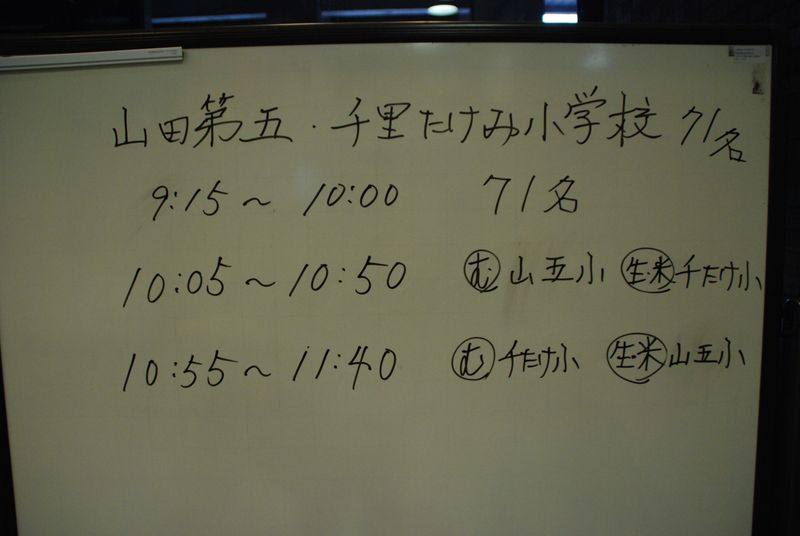 山田第五・千里たけみ小学校 71名
9:15～10:00 71名
10:05～10:50 む 山五小 生・米 千たけ小
10:55～11:40 む 千たけ小 生・米 山五小